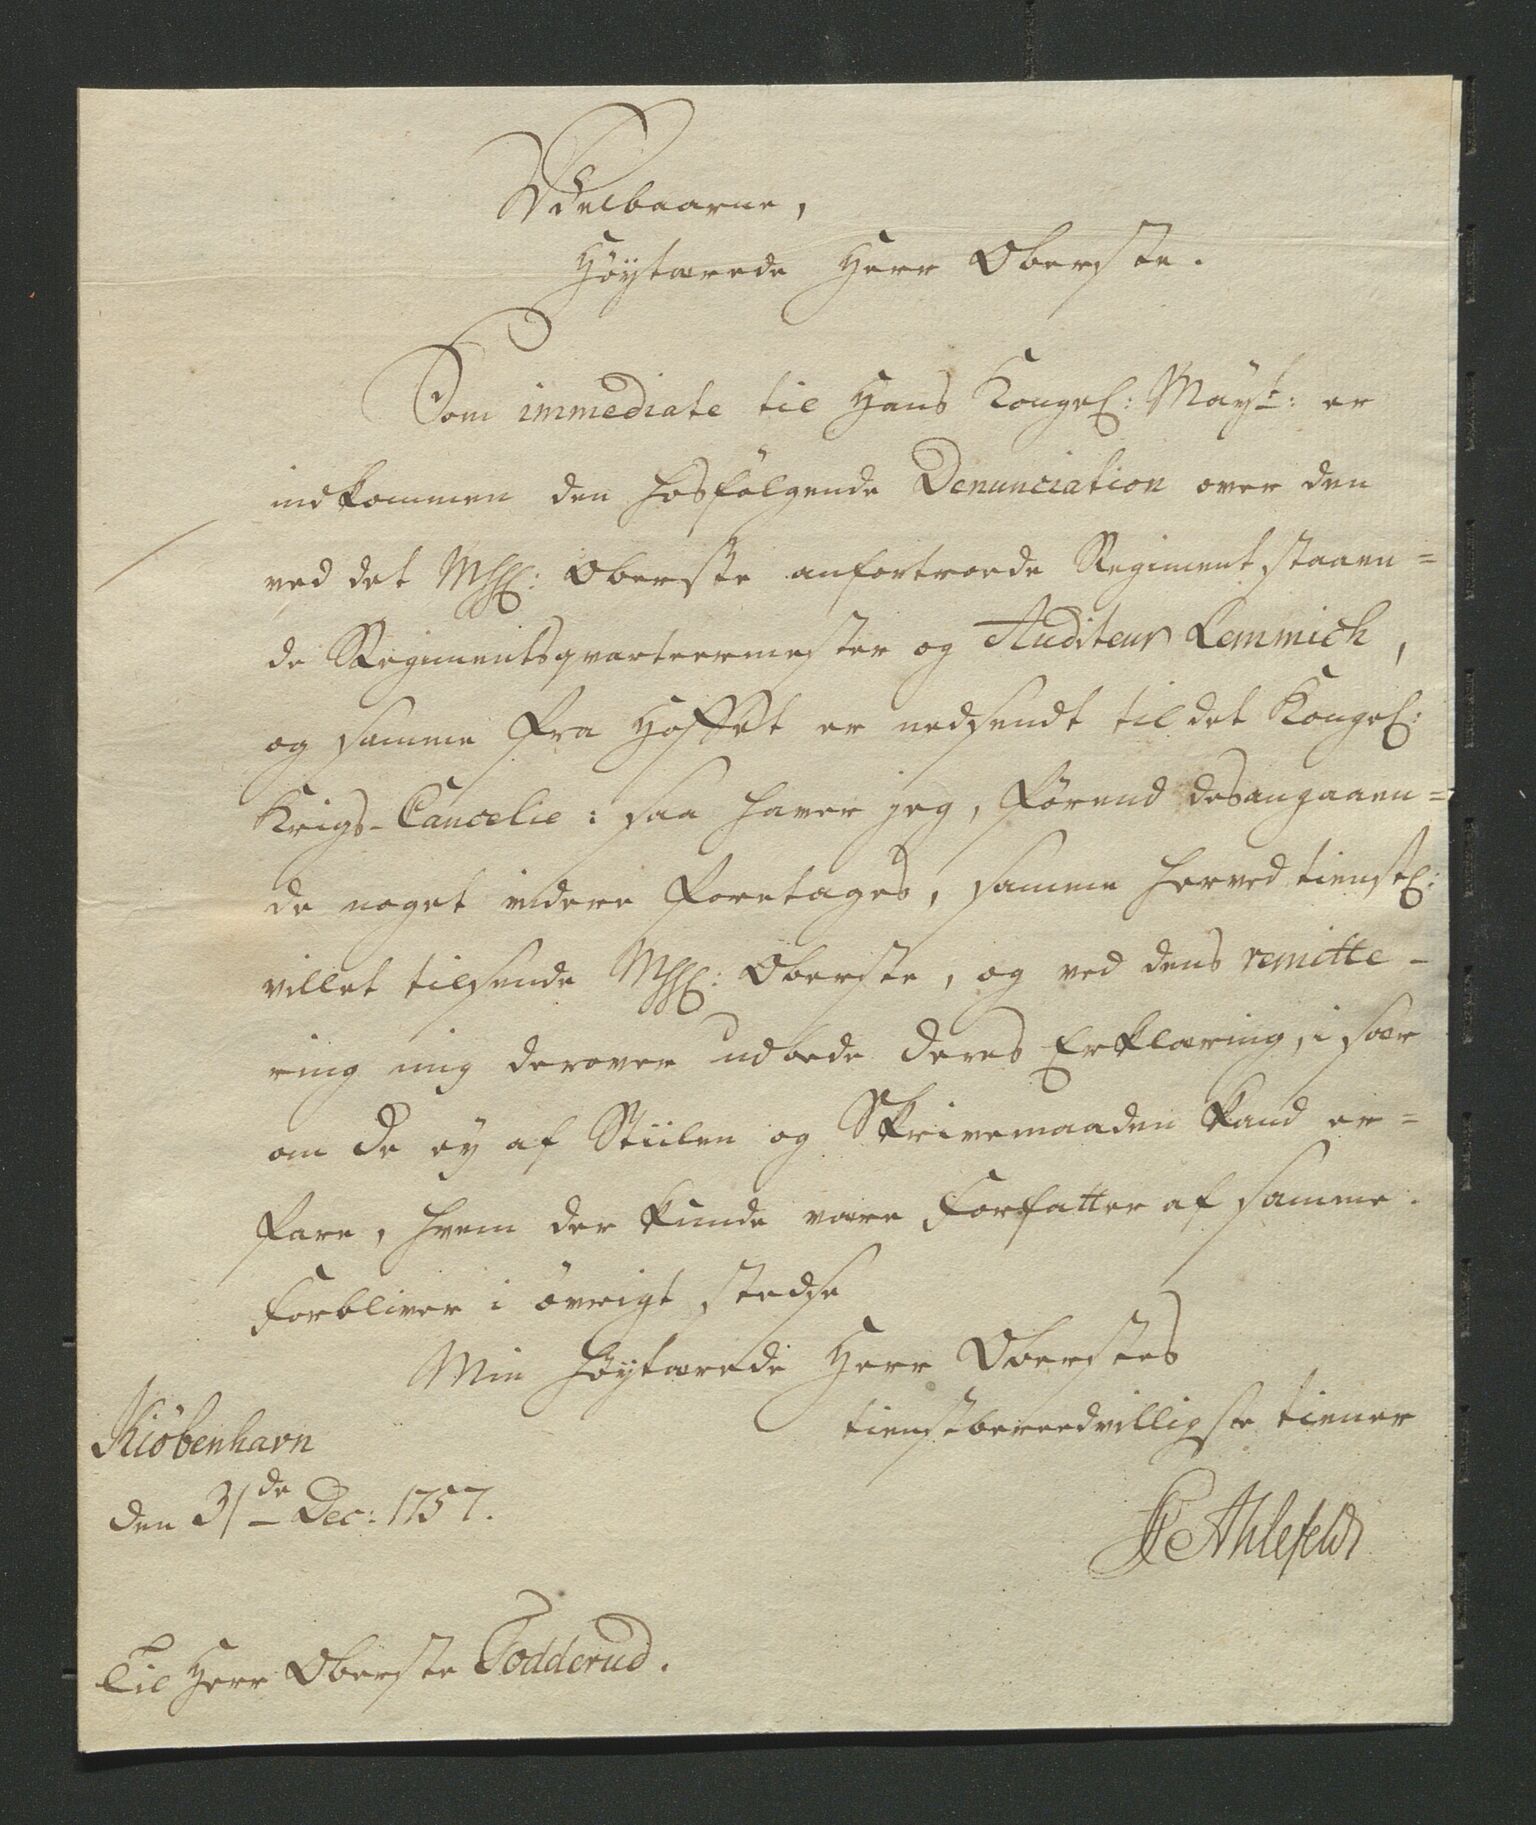 Velbaarne,
Høÿtærede Herr Oberste.
Som immediate til Hans Kongel: Maÿt: er
indkommen den hosfølgende Denunciation over den
ved det Hr: Oberste anfortroede Regiment staaen=
de Regimentsqvarteermester og Auditeur Lemmich,
og samme fra Hoffet er nedsendt til det Kongel:
Krigs-Cancelie: saa haver jeg, førend desangaaen=
de noget videre foretages, samme herved tienstl:
villet tilsende Hr: Oberste, og ved dens remitte-
ring mig derover udbede Deres Erklæring, i sær
om De eÿ af Stiilen og Skrivemaaden kand er=
fare, hvem der kunde være Forfatter af samme.
Forbliver i øvrigt stedse
Min Høÿtærede Herr Oberstes
tienstbereedvilligste tiener
Kiøbenhavn
den 31de Dec: 1757.
Ahlefeldt
Til Herr Oberste Todderud.